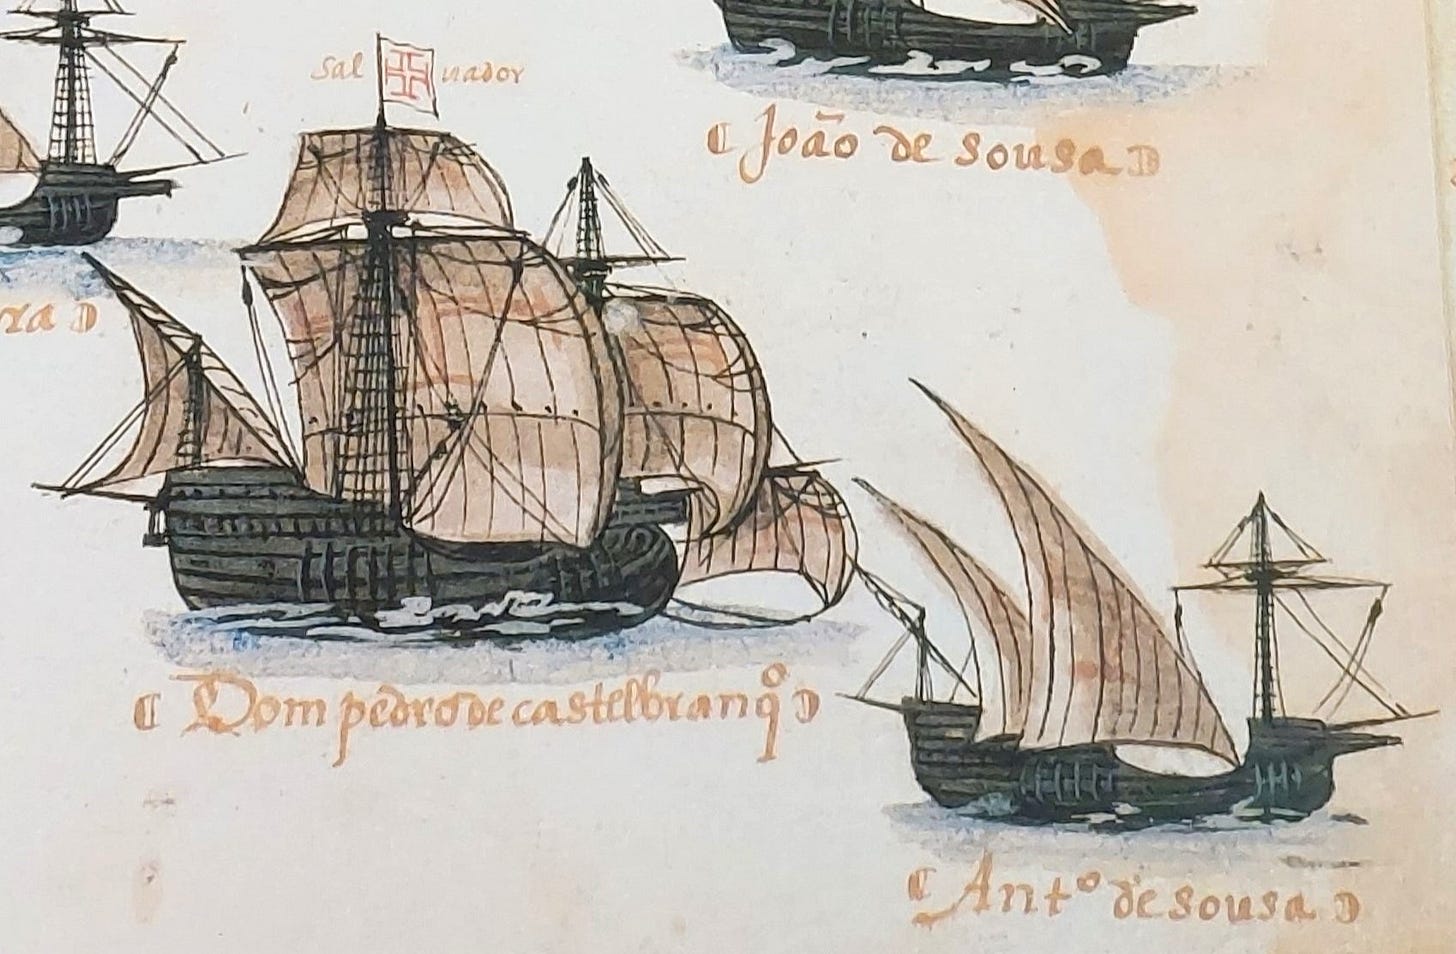 Sal uador
João de sousa
ra
Dom pedro de castelbranqº
Antº de sousa